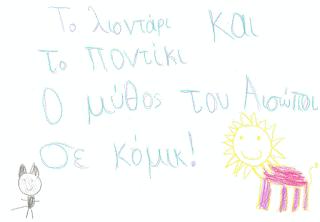 Το λιοντάρι και
το ποντίκι
Ο μύθος του Αισώπου
σε κόμικ!